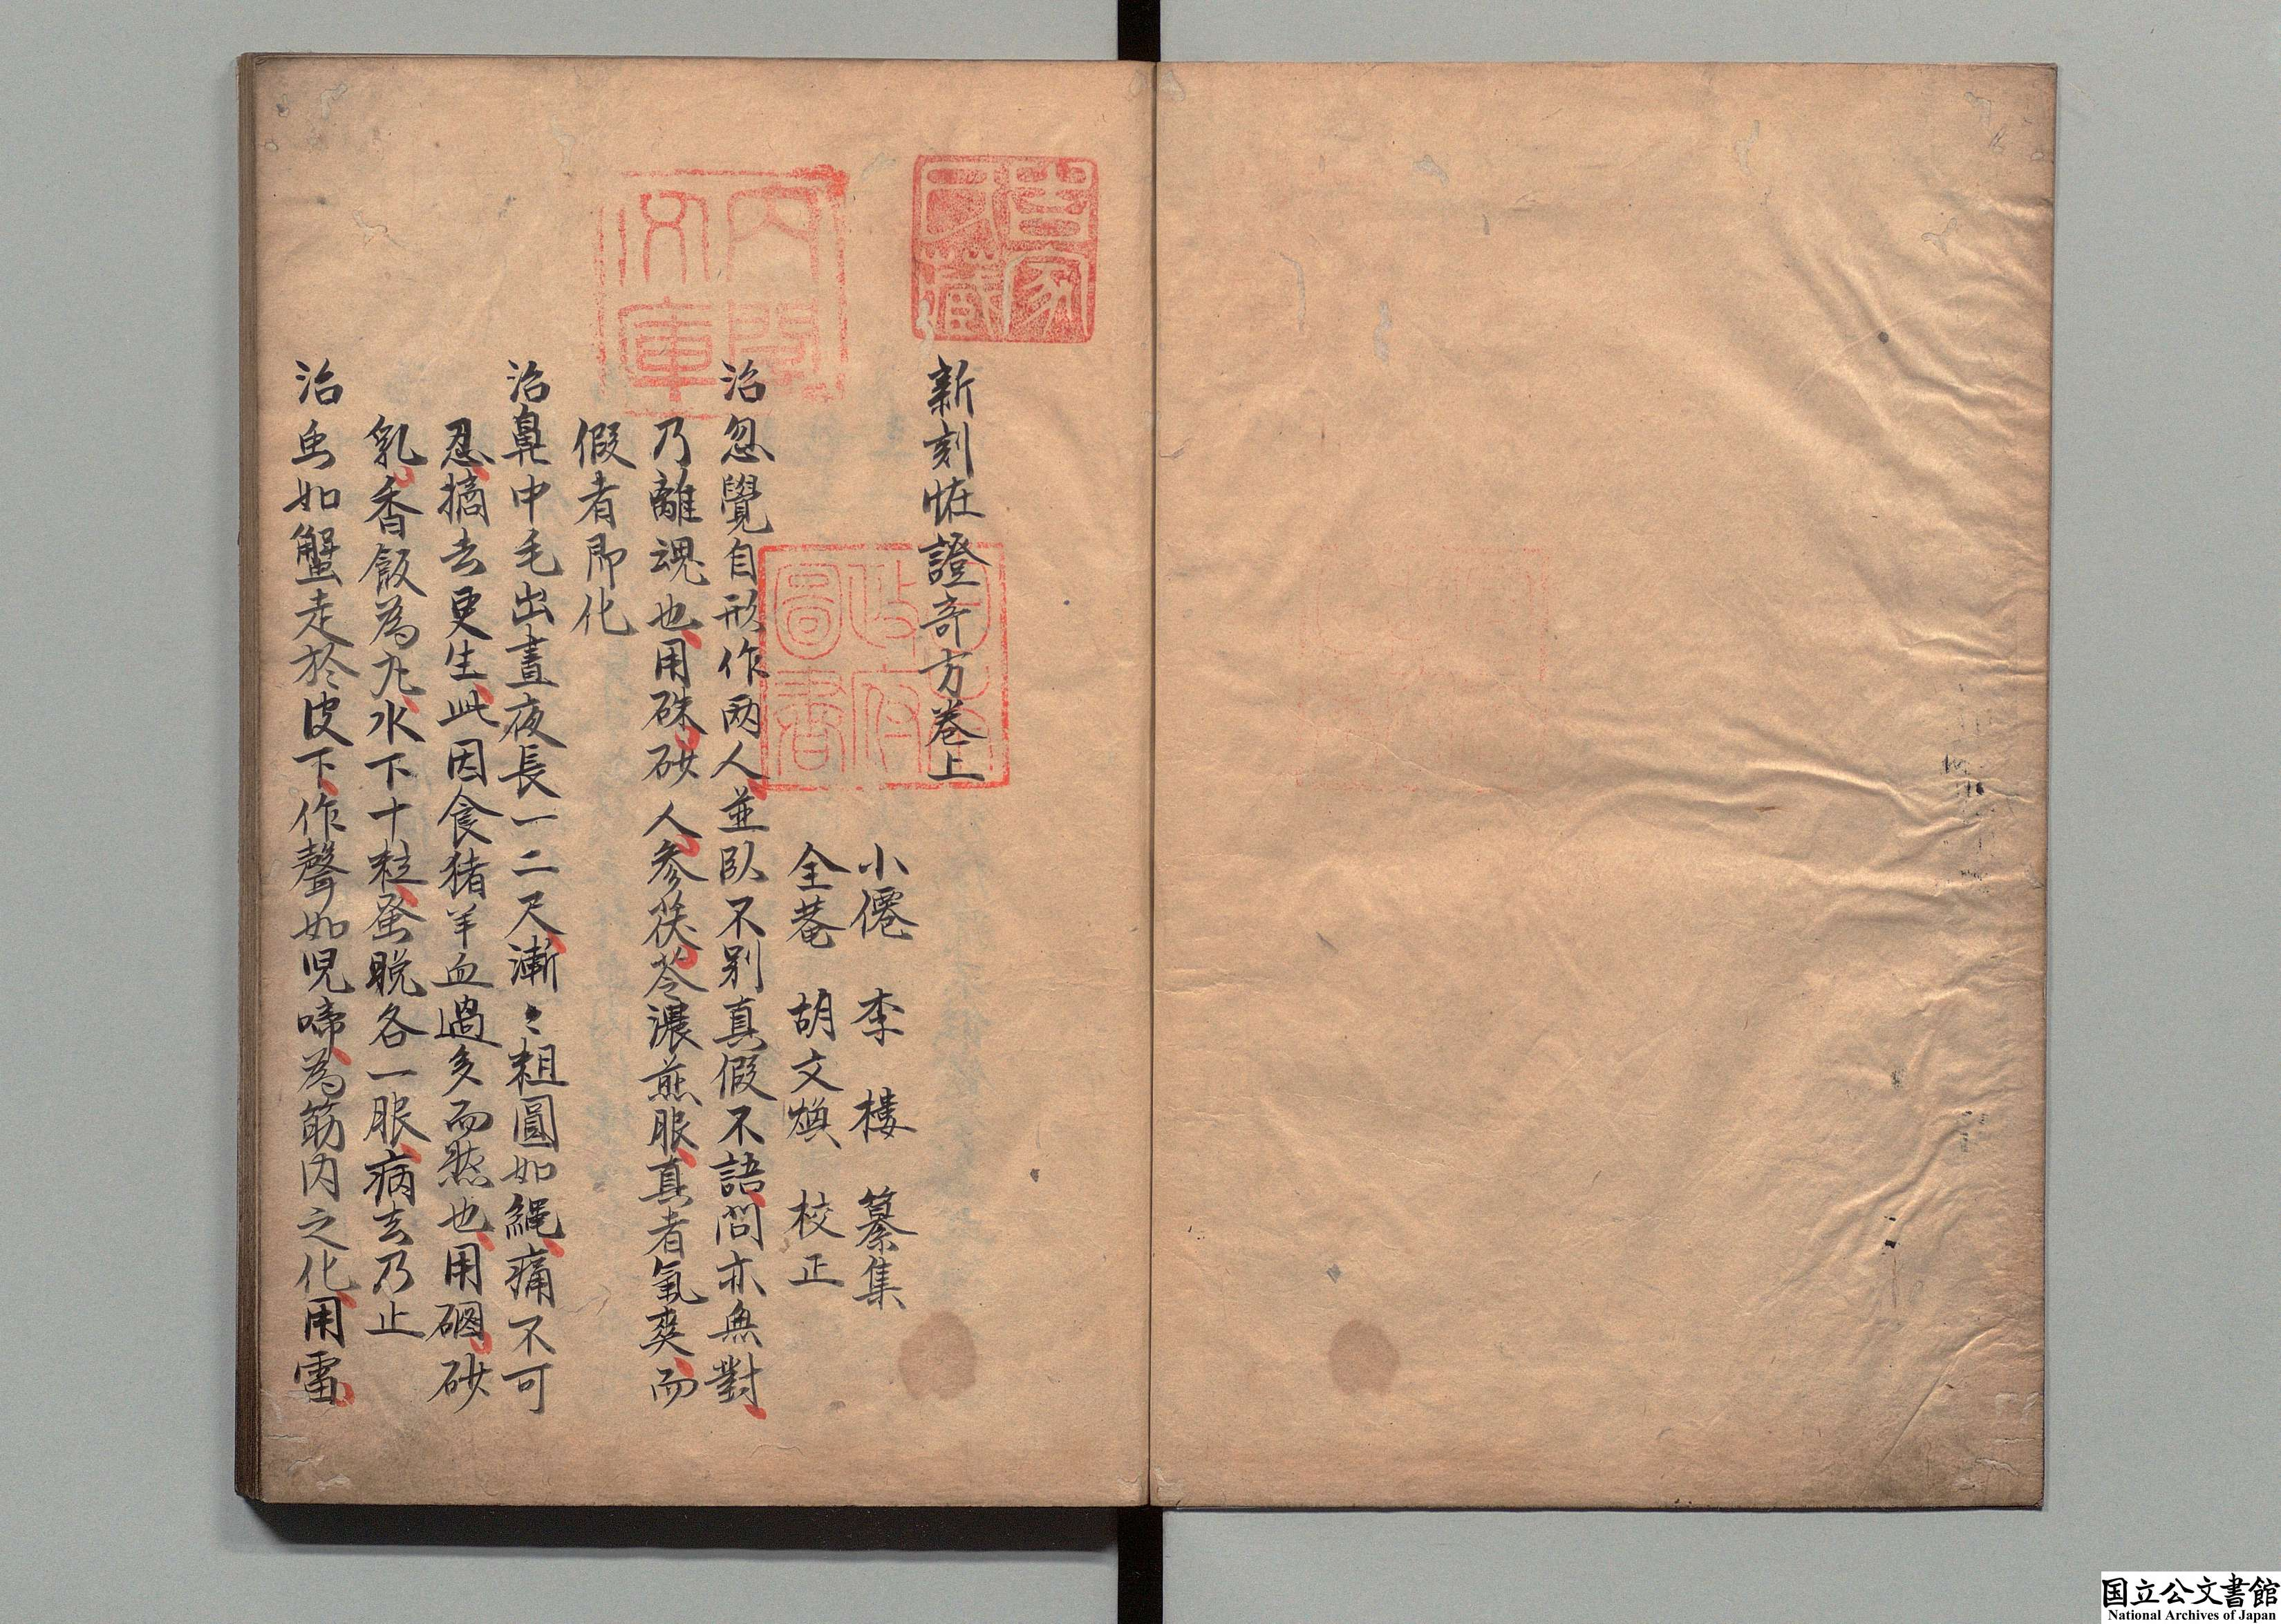 新刻恠證奇方卷上
小僊 李樓 纂集
全菴 胡文煥 校正
治忽覺自形作兩人並臥不別真假不語問亦無對
乃離魂也用硃砂人參茯苓濃煎服真者氣爽而
假者即化
治鼻中毛出晝夜長一二尺漸〻粗圓如繩痛不可
忍摘去更生此因食猪羊血過多而然也用硇砂
乳香飯為丸水下十粒蚤晚各一服病去乃止
治虫如蟹走於皮下作聲如児啼為筋肉之化用雷
內閣文庫
圖書
国立公文書館
National Archives of Japan